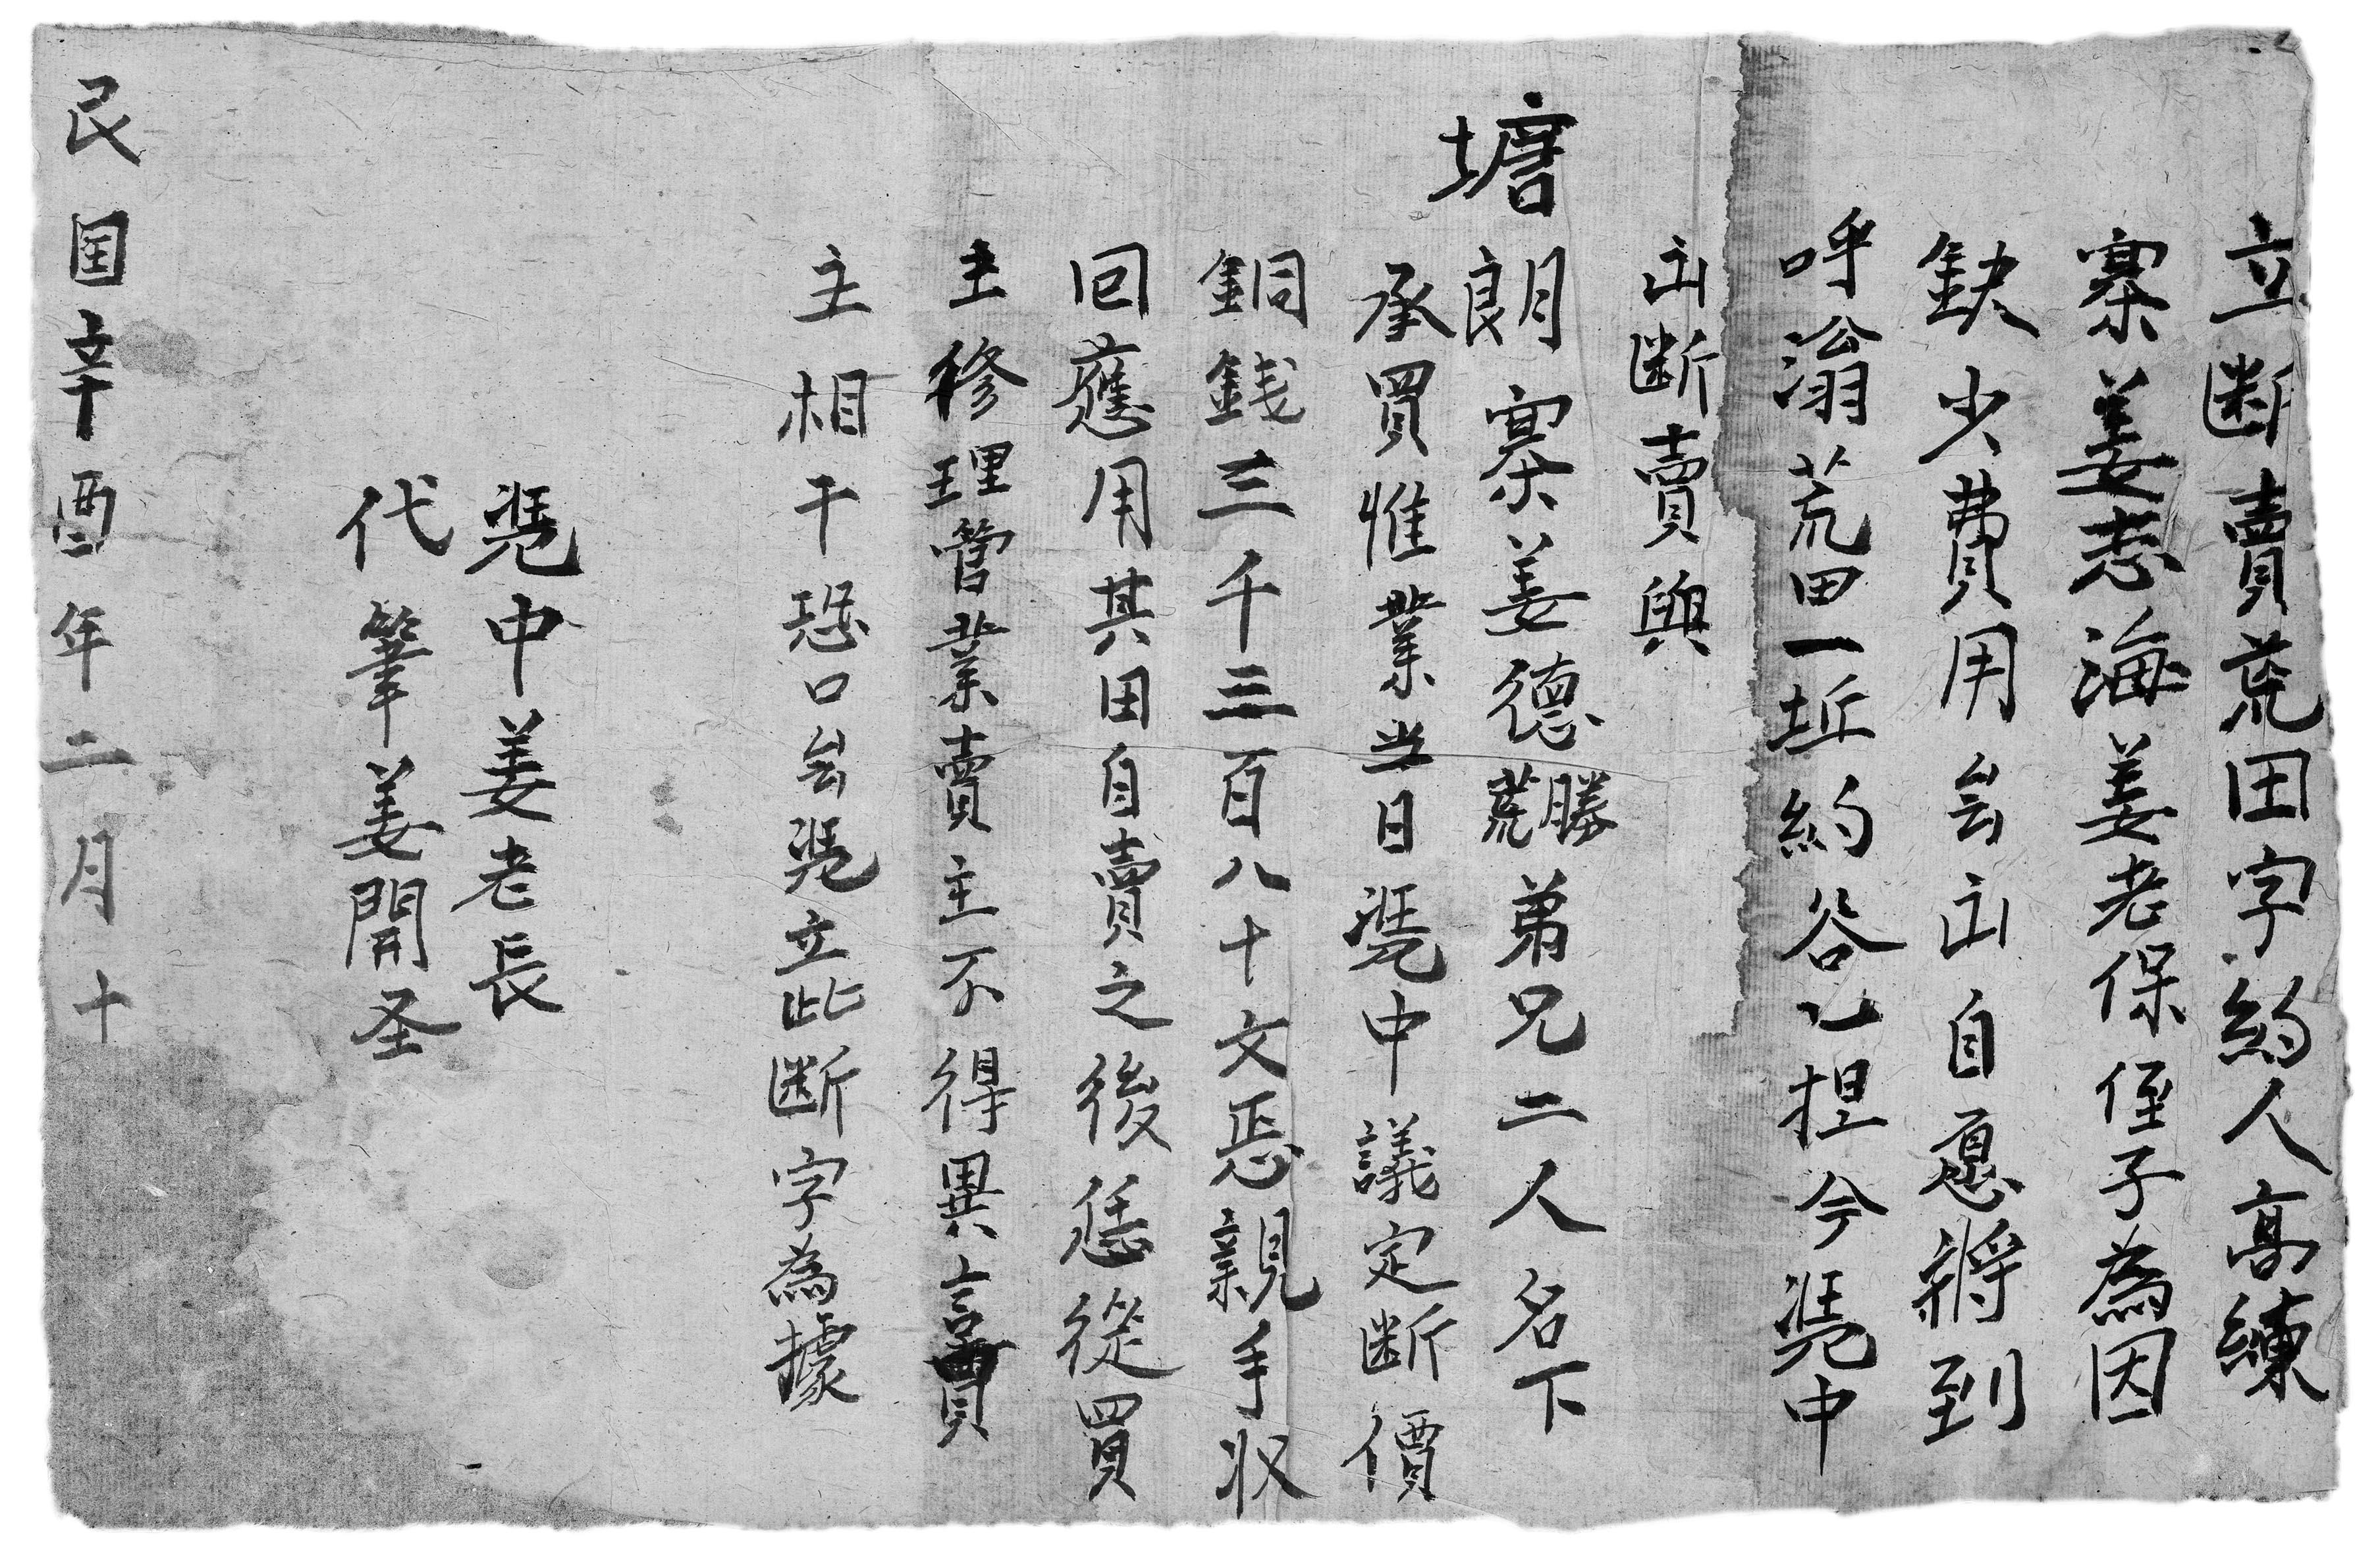 立断賣荒田字約人高練
寨姜志海姜老保侄子為因
缺少費用芸出自愿將到
呼滃荒田一坵約谷乙担今凴中
出断賣與
塘朗寨姜德勝荒弟兄二人名下
承買惟業当日凴中議定断價
銅錢三千三百八十文悉親手收
回應用其田自賣之後恁從買
主修理管業賣主不得異言
主相干恐口芸凴立此断字為據
凴中姜老長
代筆姜開圣
民国辛酉年二月十